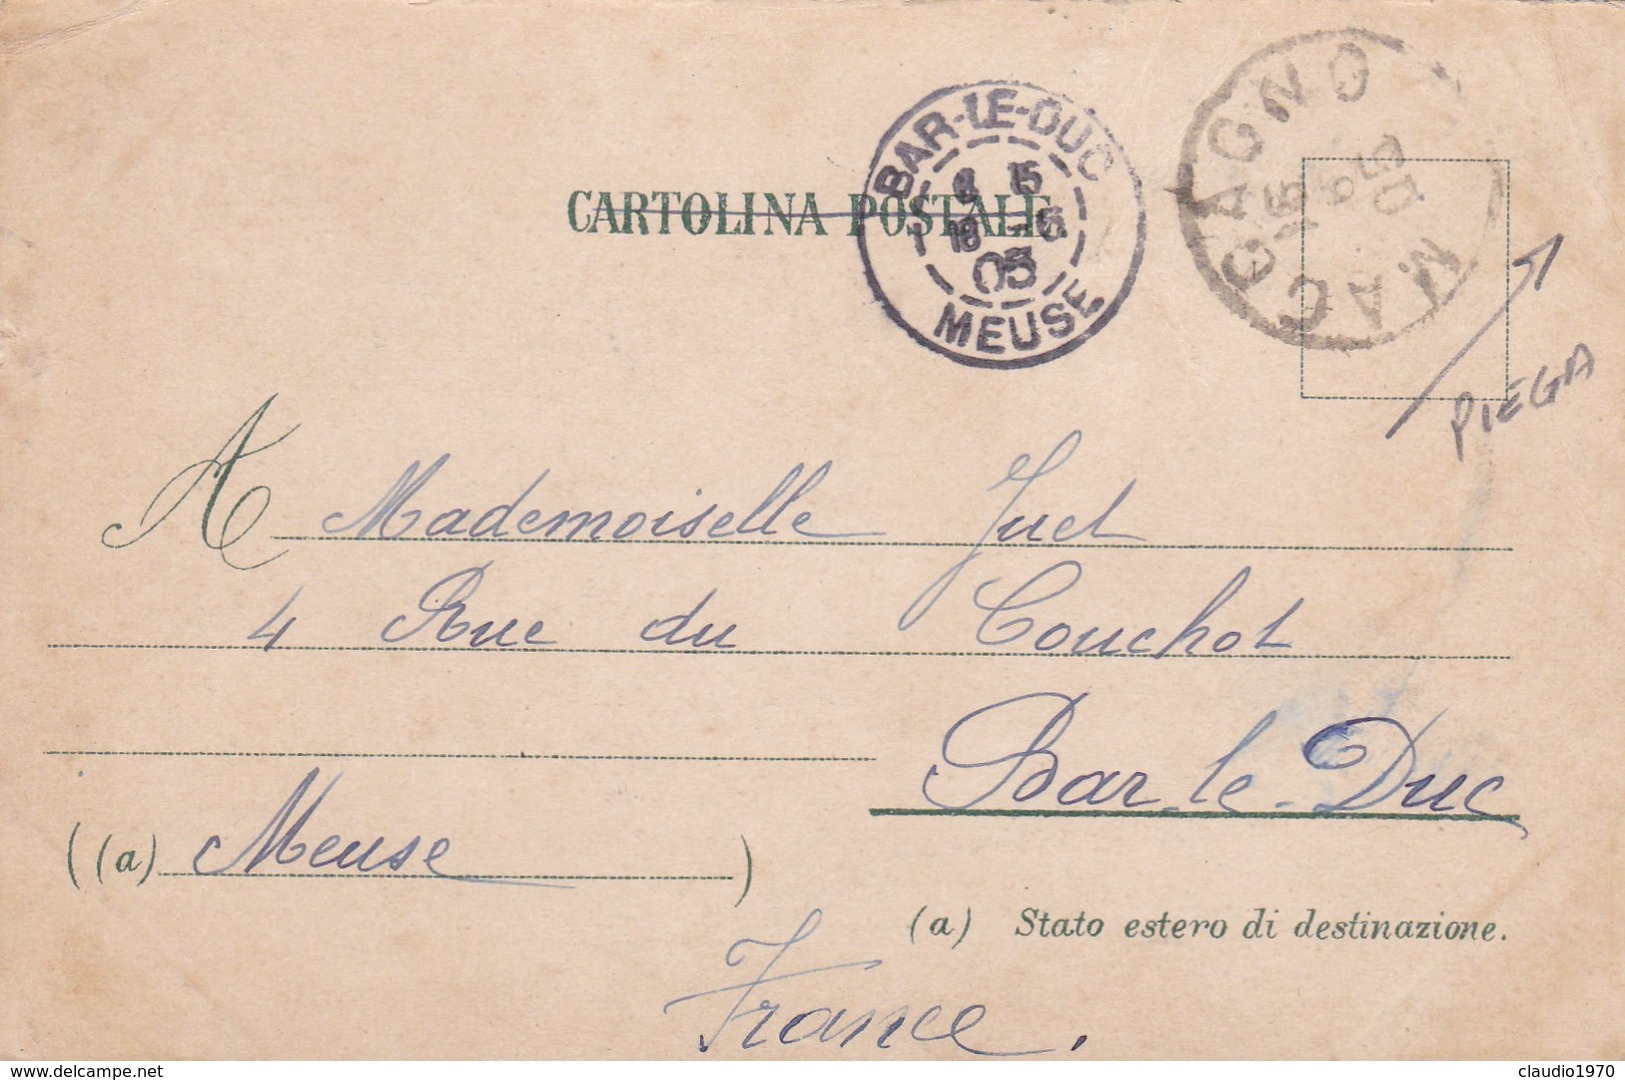 BAR-LE-DUC
8 15
18 -5
03
MEUSE
MACCAGNO
CARTOLINA POSTALE
PIEGA
A Mademoiselle Juet
4 Rue du Couchot
Bar-le-Duc
((a) Meuse )
(a) Stato estero di destinazione.
France.
delcampe.net
claudio1970